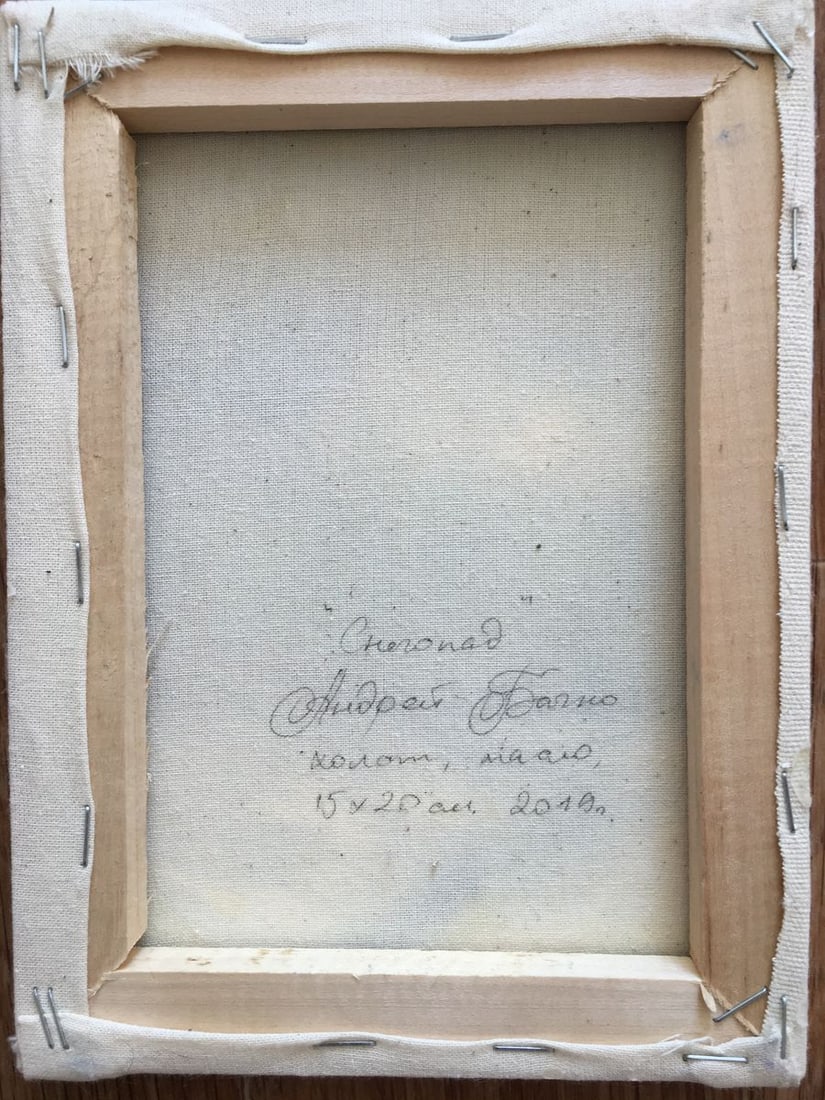 "Снегопад"
Андрей Бачко
холст, масло,
15х20 см. 2019г.